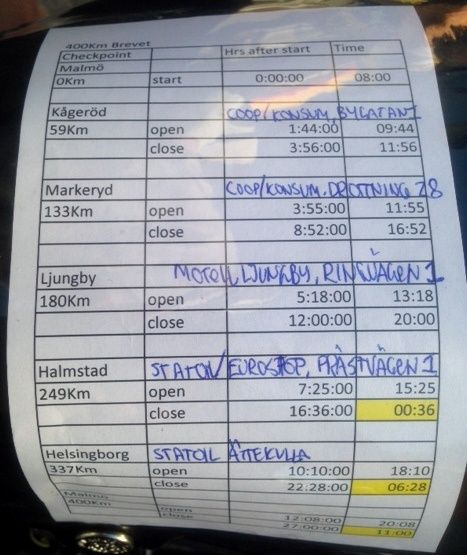 400Km Brevet
Checkpoint Hrs after start Time
Malmö
0Km start 0:00:00 08:00
Kågeröd COOP/KONSUM, BYGATAN 1
59Km open 1:44:00 09:44
close 3:56:00 11:56
Markeryd COOP/KONSUM. DROTTNING 28
133Km open 3:55:00 11:55
close 8:52:00 16:52
Ljungby MOTELL LJUNGBY, RINGVÄGEN 1
180Km open 5:18:00 13:18
close 12:00:00 20:00
Halmstad STATOIL/EUROSTOP, PRÄSTVÄGEN 1
249Km open 7:25:00 15:25
close 16:36:00 00:36
Helsingborg STATOIL ÄTTEKULLA
337Km open 10:10:00 18:10
close 22:28:00 06:28
Malmö
400Km open 12:08:00 20:08
close 27:00:00 11:00